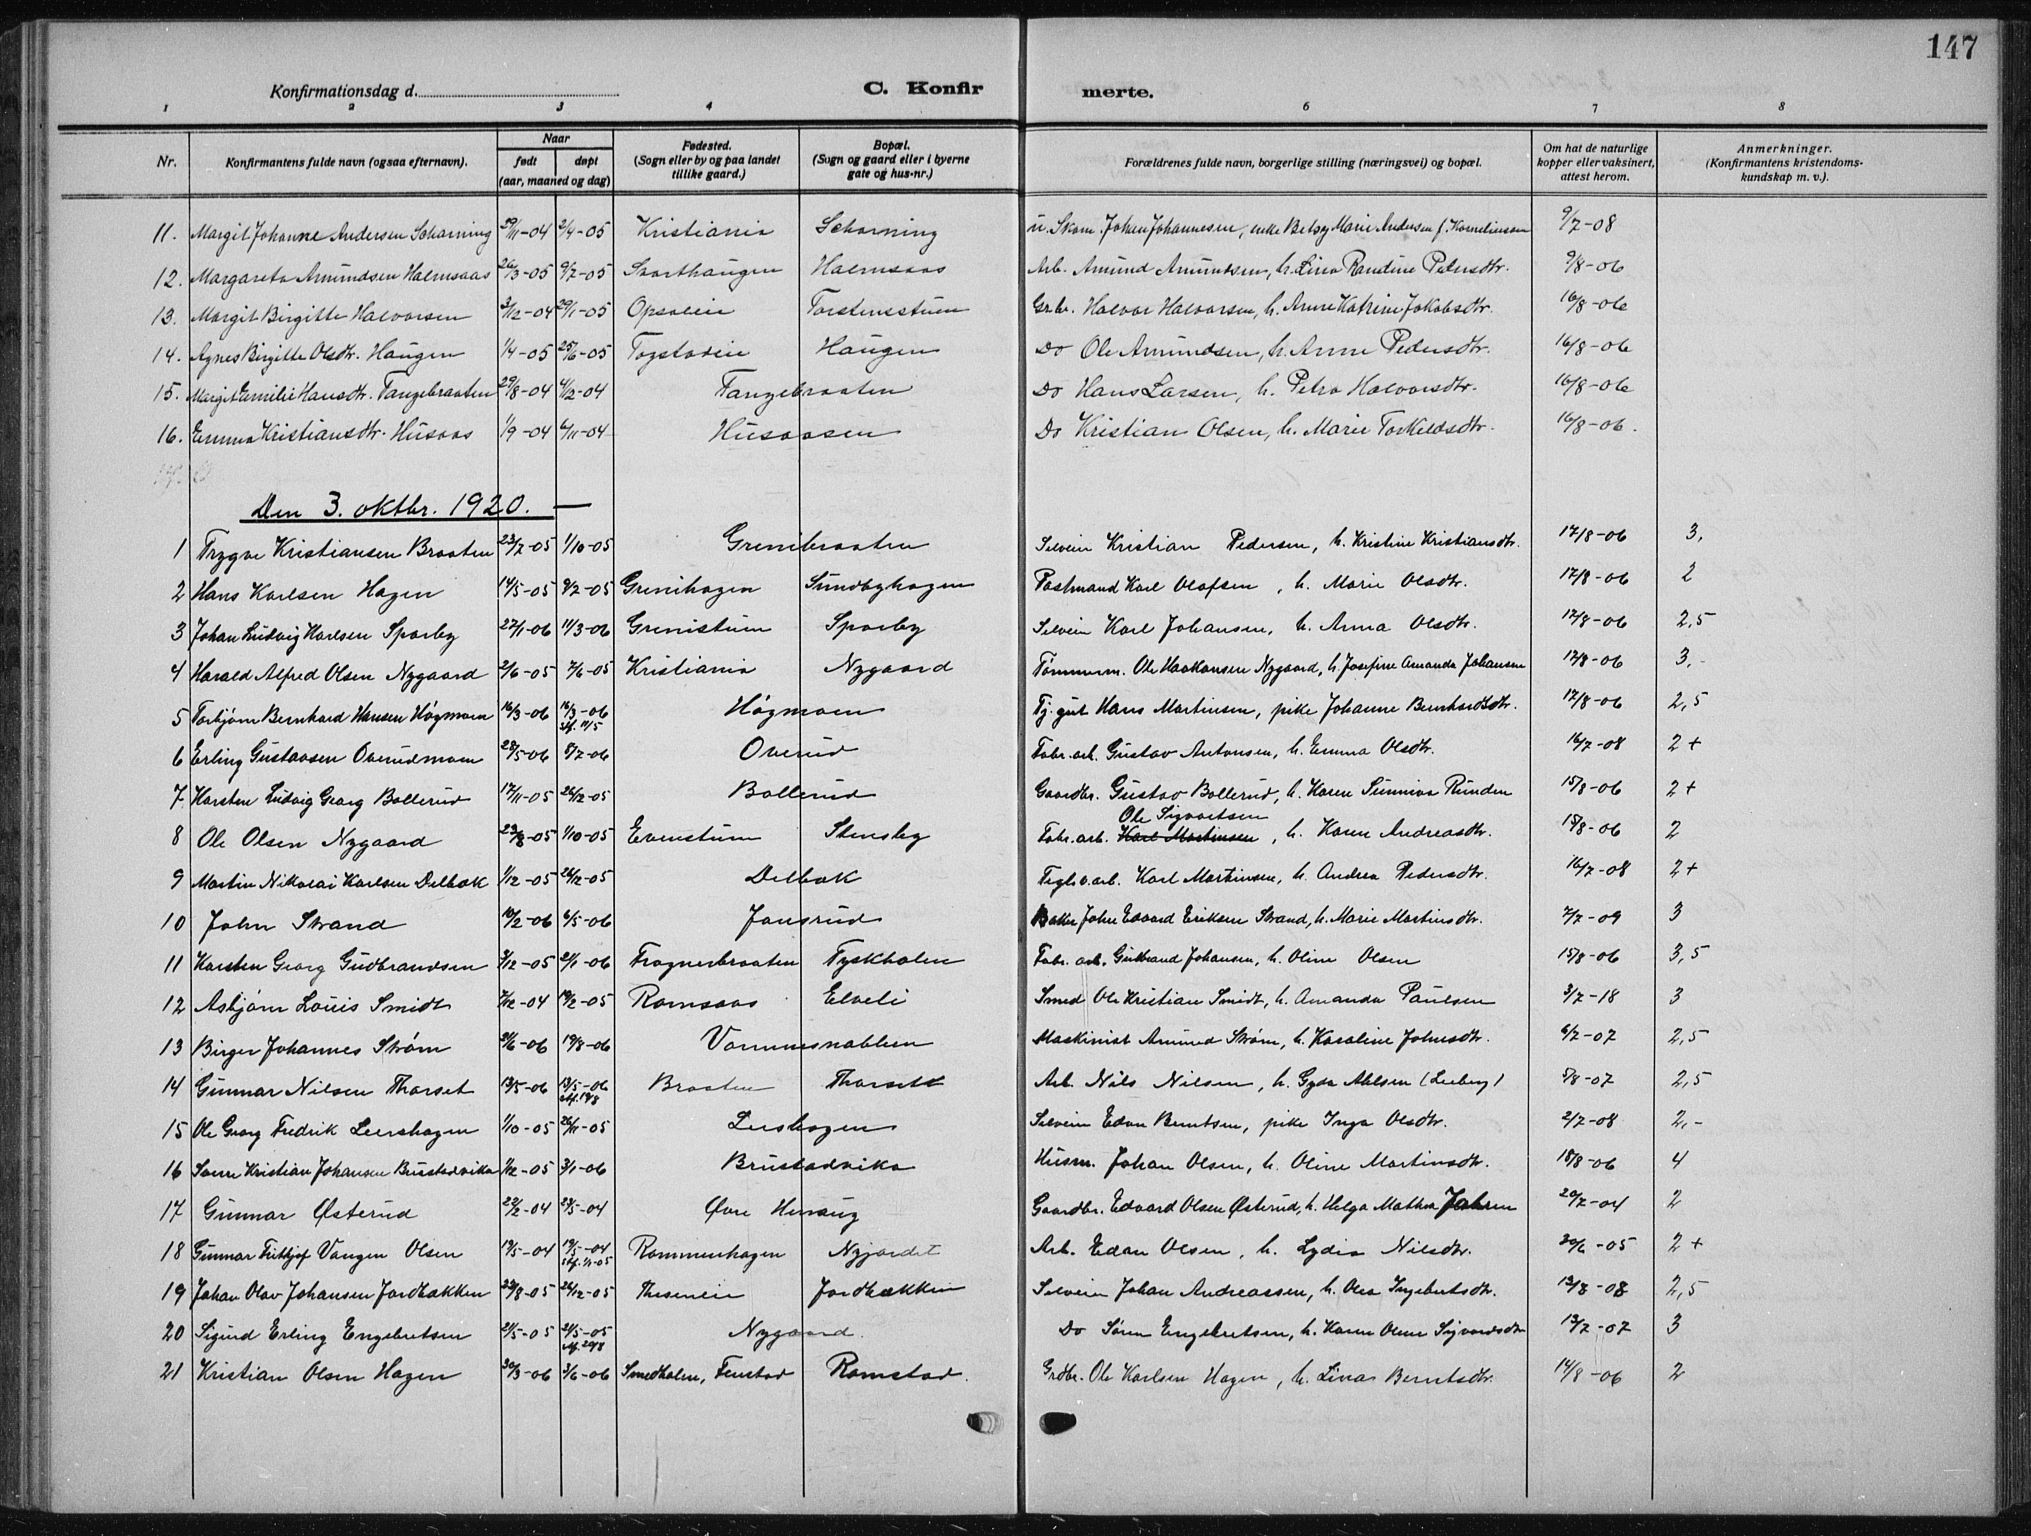 147
Konfirmationsdag d.
C. Konfir
merte.
1 2 3 4 6 7 8
Nr.
Konfirmantens fulde navn (ogsaa efternavn).
Naar
født
døpt
(aar, maaned og dag)
Fødested.
(Sogn eller by og paa landet
tillike gaard.)
Bopæl.
(Sogn og gaard eller i byerne
gate og hus-nr.)
Forældrenes fulde navn, borgerlige stilling (næringsvei) og bopæl.
Om hat de naturlige
kopper eller vaksinert,
attest herom.
Anmerkninger.
(Konfirmantens kristendoms-
kundskap m. v.).
11. Margit Johanne Andersen Scharning 29/11-04 2/4-05 Kristiania Scharning u. Skom. Johan Johannesen, enke Betsy Marie Andersen f. Korneliussen 9/7-08
12. Margareta Amundsen Halmsaas 26/3-05 9/7-05 Svarthaugen Halmsaas Arb. Amund Amundsen, h. Lina Randine Petersdtr. 9/8-06
13. Margit Birgitte Halvorsen 3/12-04 29/1-05 Opsaleie Torstensstuen Grbr. Halvor Halvorsen, h. Anne Katrine Jakobsdtr. 16/8-06
14. Agnes Birgitte Olsdtr. Haugen 1/4-05 25/6-05 Togstadeie Haugen Do Ole Amundsen, h. Anne Pedersdtr. 16/8-06
15. Margit Emilie Hansdtr. Tangebraaten 29/8-04 4/12-04 Tangebraaten Do Hans Larsen, h. Petra Halvorsdtr. 16/8-06
16. Emma Kristiansdtr. Husaas 1/9-04 6/11-04 Husaasen Do Kristian Olsen, h. Marie Torkildsdtr. 16/8-06.
Den 3. oktbr. 1920.
1 Trygve Kristiansen Braaten 23/7-05 1/10-05 Grenibraaten Selveier Kristian Pedersen, h. Kristine Kristiansdtr. 17/8-06 3,
2 Hans Karlsen Hagen 14/5-05 9/7-05 Grenihagen Sundbyhagen Postmand Karl Olafsen, h. Marie Olsdtr. 17/8-06 2
3 Johan Ludvig Karlsen Sparby 27/1-06 11/3-06 Grenistuen Sparby Selveier Karl Johansen, h. Anna Olsdtr. 17/8-06 2,5
4 Harald Alfred Olsen Nygaard 2/6-05 7/6-05 Kristiania Nygaard Tømmerm. Ole Haakonsen Nygaard, h. Josefine Amanda Johansen 17/8-06 3,-
5 Torbjørn Bernhard Hansen Høgmoen 16/3-06 16/3-06 Høgmoen Tj.gut Hans Martinsen, pike Johanne Bernhardsdtr. 17/8-06 2,5
6 Erling Gustavsen Overudmoen 28/5-06 8/7-06 Overud Fabr.arb. Gustav Antonsen, h. Emma Olsdtr. 16/7-08 2+
7 Karsten Ludvig Georg Bollerud 17/11-05 26/12-05 Bollerud Gaardbr. Gustav Bollerud, h. Karen Sunniva Runden 15/8-06 2+
8 Ole Olsen Nygaard 23/8-05 1/10-05 Evenstuen Stensby Fabr.arb. Karl Martinsen Ole Sigvartsen, h. Karen Andreasdtr. 15/8-06 2
9 Martin Nikolai Karlsen Delbak 1/12-05 26/12-05 Delbak Teglv.arb. Karl Martinsen, h. Andrea Pedersdtr. 16/7-08 2+
10 John Strand 10/2-06 6/5-06 Jansrud Baker John Edvard Eriksen Strand, h. Marie Martinsdtr. 7/7-09 3
11 Karsten Georg Gudbrandsen 3/12-05 2/1-06 Frognerbraaten Tyskholen Fabr. arb. Gudbrand Johansen, h. Oline Olsen 15/8-06 3,5
12 Asbjørn Louis Smidt 7/12-04 19/2-05 Ramsaas Elveli Smed Ole Kristian Smidt, h. Amanda Paulsen 3/7-18 3
13 Birger Johannes Strøm 21/6-06 19/8-06 Vormesnabben Maskinist Amund Strøm, h. Karoline Johnsdtr. 6/7-07 2,5
14 Gunnar Nilsen Tharset 13/5-06 13/5-06 Braaten Tharset Arb. Nils Nilsen, h. Gyda Ablsen (Leeberg) 5/8-07 2,5
15 Ole Georg Fredrik Leershagen 1/10-05 26/11-05 Leershagen Selveier Edvin Berntsen, pike Inga Olsdtr. 2/7-08 2,-
16 Søren Kristian Johansen Brustadvika 1/12-05 3/1-06 Brustadvika Husm. Johan Olsen, h. Oline Martinsdtr. 18/8-06 4
17 Gunnar Østerud 22/2-04 23/5-04 Øvre Hennung Gaardbr. Edvard Olsen Østerud, h. Helga Mathea Jahren 20/7-04 2
18 Gunnar Fritjof Vangen Olsen 19/5-04 19/5-04 Rommenhagen Nyjordet Arb. Edvin Olsen, h. Lydia Nilsdtr. 20/6-05 2+
19 Johan Olav Johansen Jordbakken 23/8-05 26/12-05 Theseneie Jordbakken Selveier Johan Andreassen, h. Olea Ingebretsdtr. 13/8-08 2,5
20 Sigurd Erling Engebretsen 21/5-05 21/5-05 Nygaard. Do Søren Engebretsen, h. Karen Oline Sigvardsdtr 13/7-07 3
21 Kristian Olsen Hagen 30/3-06 3/6-06 Smedholen, Fenstad Ramstad. Grdbr. Ole Karlsen Hagen, h. Lina Berntsdtr. 14/8-06 2